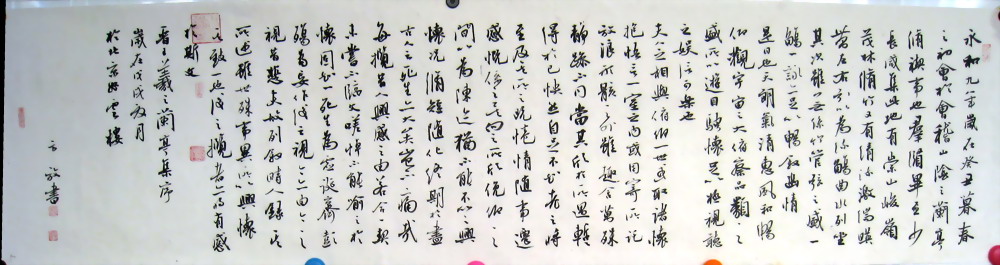 永和九年歲在癸丑暮春
之初會於會稽山陰之蘭亭
脩禊事也羣賢畢至少
長咸集此地有崇山峻嶺
茂林脩竹又有清流激湍映
帶左右引以為流觴曲水列坐
其次雖無絲竹管弦之盛一
觴一詠亦足以暢敘幽情
是日也天朗氣清惠風和暢
仰觀宇宙之大俯察品類之
盛所以遊目騁懷足以極視聽
之娛信可樂也
夫人之相與俯仰一世或取諸懷
抱悟言一室之內或因寄所託
放浪形骸之外雖趣舍萬殊
靜躁不同當其欣於所遇暫
得於己快然自足不知老之將
至及其所之既惓情隨事遷
感慨係之矣向之所欣俛仰之
間以為陳迹猶不能不以之興
懷況脩短隨化終期於盡
古人云死生亦大矣豈不痛哉
每攬昔人興感之由若合一契
未嘗不臨文嗟悼不能喻之於
懷固知一死生為虛誕齊彭
殤為妄作後之視今亦由今之
視昔悲夫故列敘時人錄其
所述雖世殊事異所以興懷
其致一也後之攬者亦將有感
於斯文
晉王羲之蘭亭集序
歲在戊戌月
於北京雲樓
書